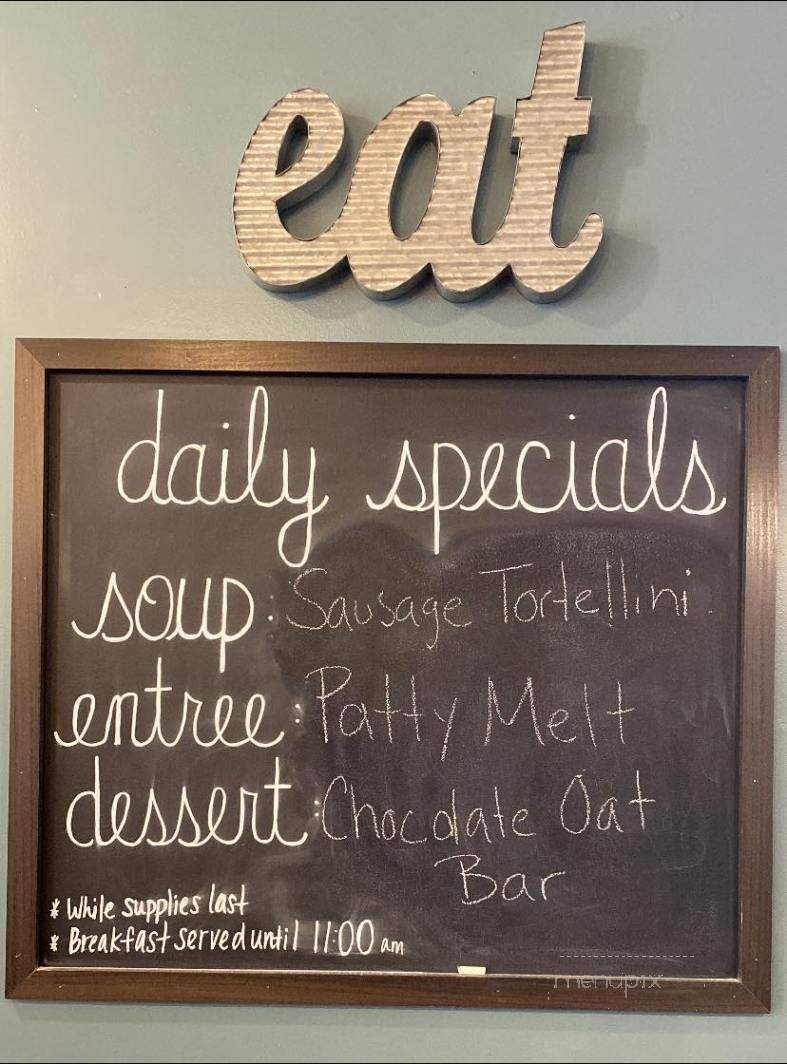 eat
daily specials
soup: Sausage Tortellini
entree: Patty Melt
dessert: Chocolate Oat
Bar
* While supplies last
* Breakfast served until 11:00 am
menupix